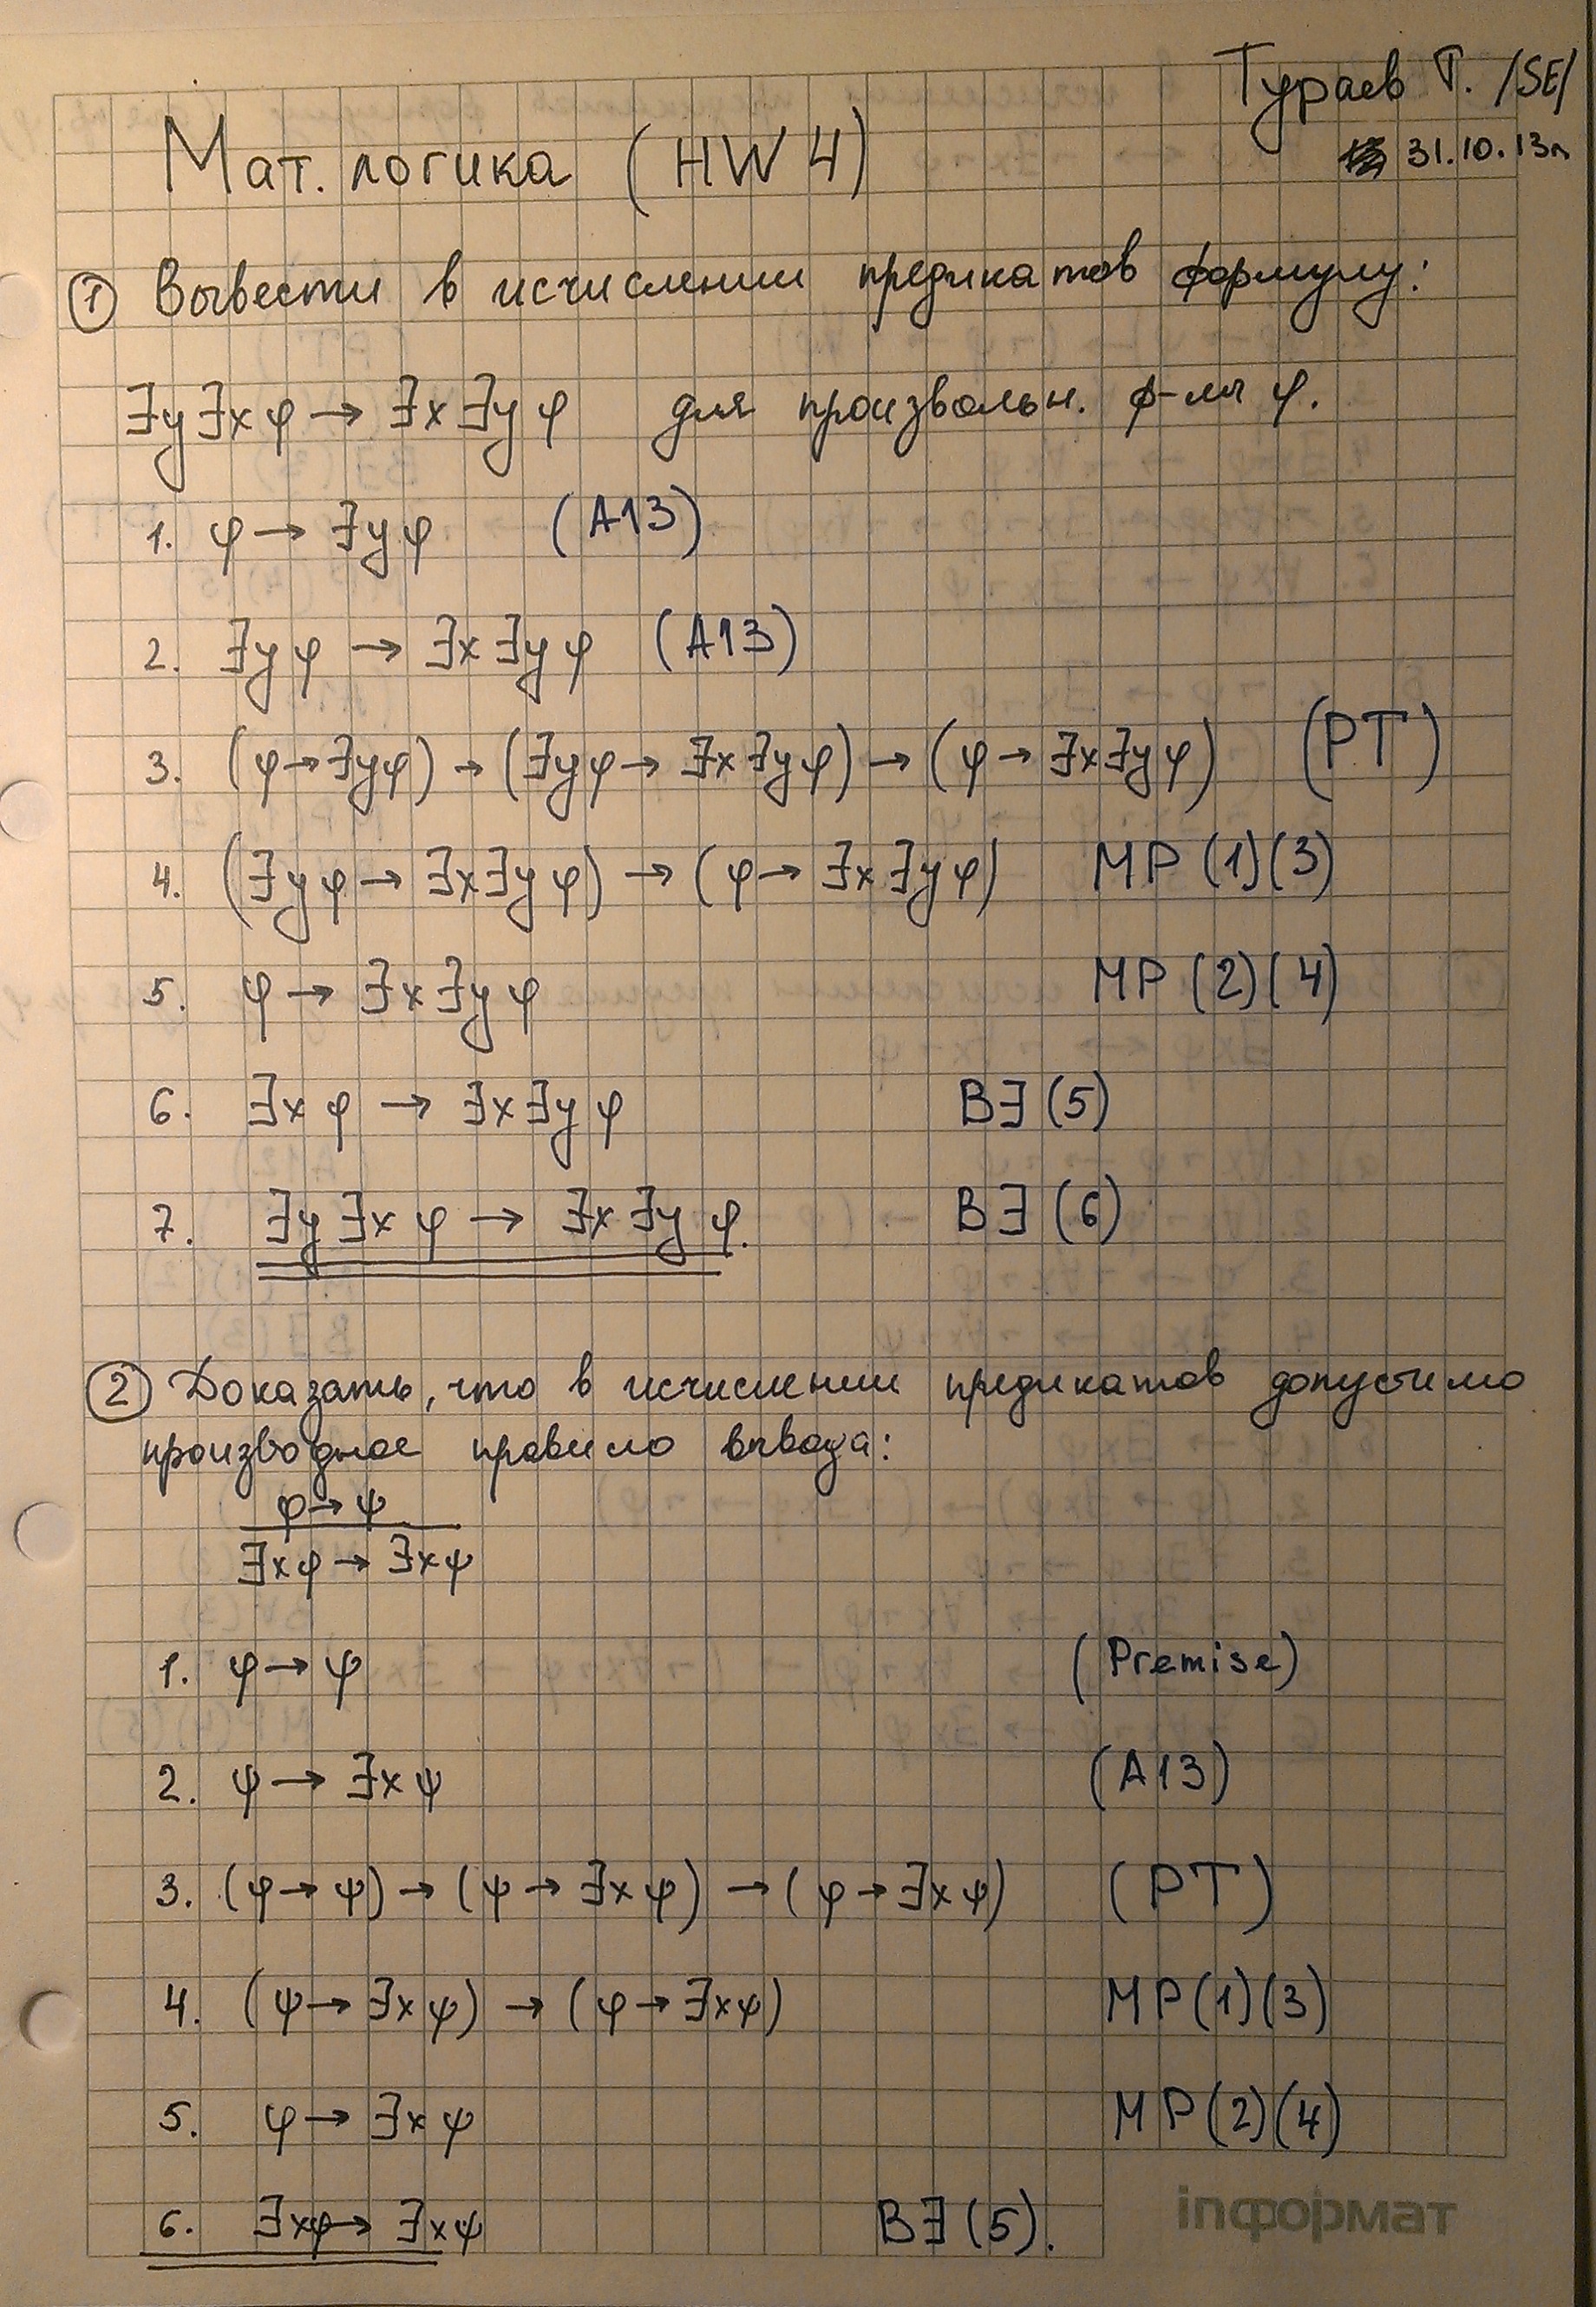 Тураев Т. /SE/
31.10.13г.
Мат. логика (HW 4)
① Вывести в исчислении предикатов формулу:
∃y∃xφ → ∃x∃yφ для произвольн. ф-лы φ.
1. φ → ∃yφ (A13)
2. ∃yφ → ∃x∃yφ (A13)
3. (φ→∃yφ) → (∃yφ → ∃x∃yφ) → (φ → ∃x∃yφ) (PT)
4. (∃yφ → ∃x∃yφ) → (φ → ∃x∃yφ) MP (1)(3)
5. φ → ∃x∃yφ MP (2)(4)
6. ∃xφ → ∃x∃yφ B∃(5)
7. ∃y∃xφ → ∃x∃yφ. B∃(6)
② Доказать, что в исчислении предикатов допустимо
производное правило вывода:
φ→ψ
∃xφ → ∃xψ
1. φ→ψ (Premise)
2. ψ → ∃xψ (A13)
3. (φ→ψ) → (ψ → ∃xψ) → (φ → ∃xψ) (PT)
4. (ψ → ∃xψ) → (φ → ∃xψ) MP(1)(3)
5. φ → ∃xψ MP(2)(4)
6. ∃xφ → ∃xψ B∃(5).
inформат